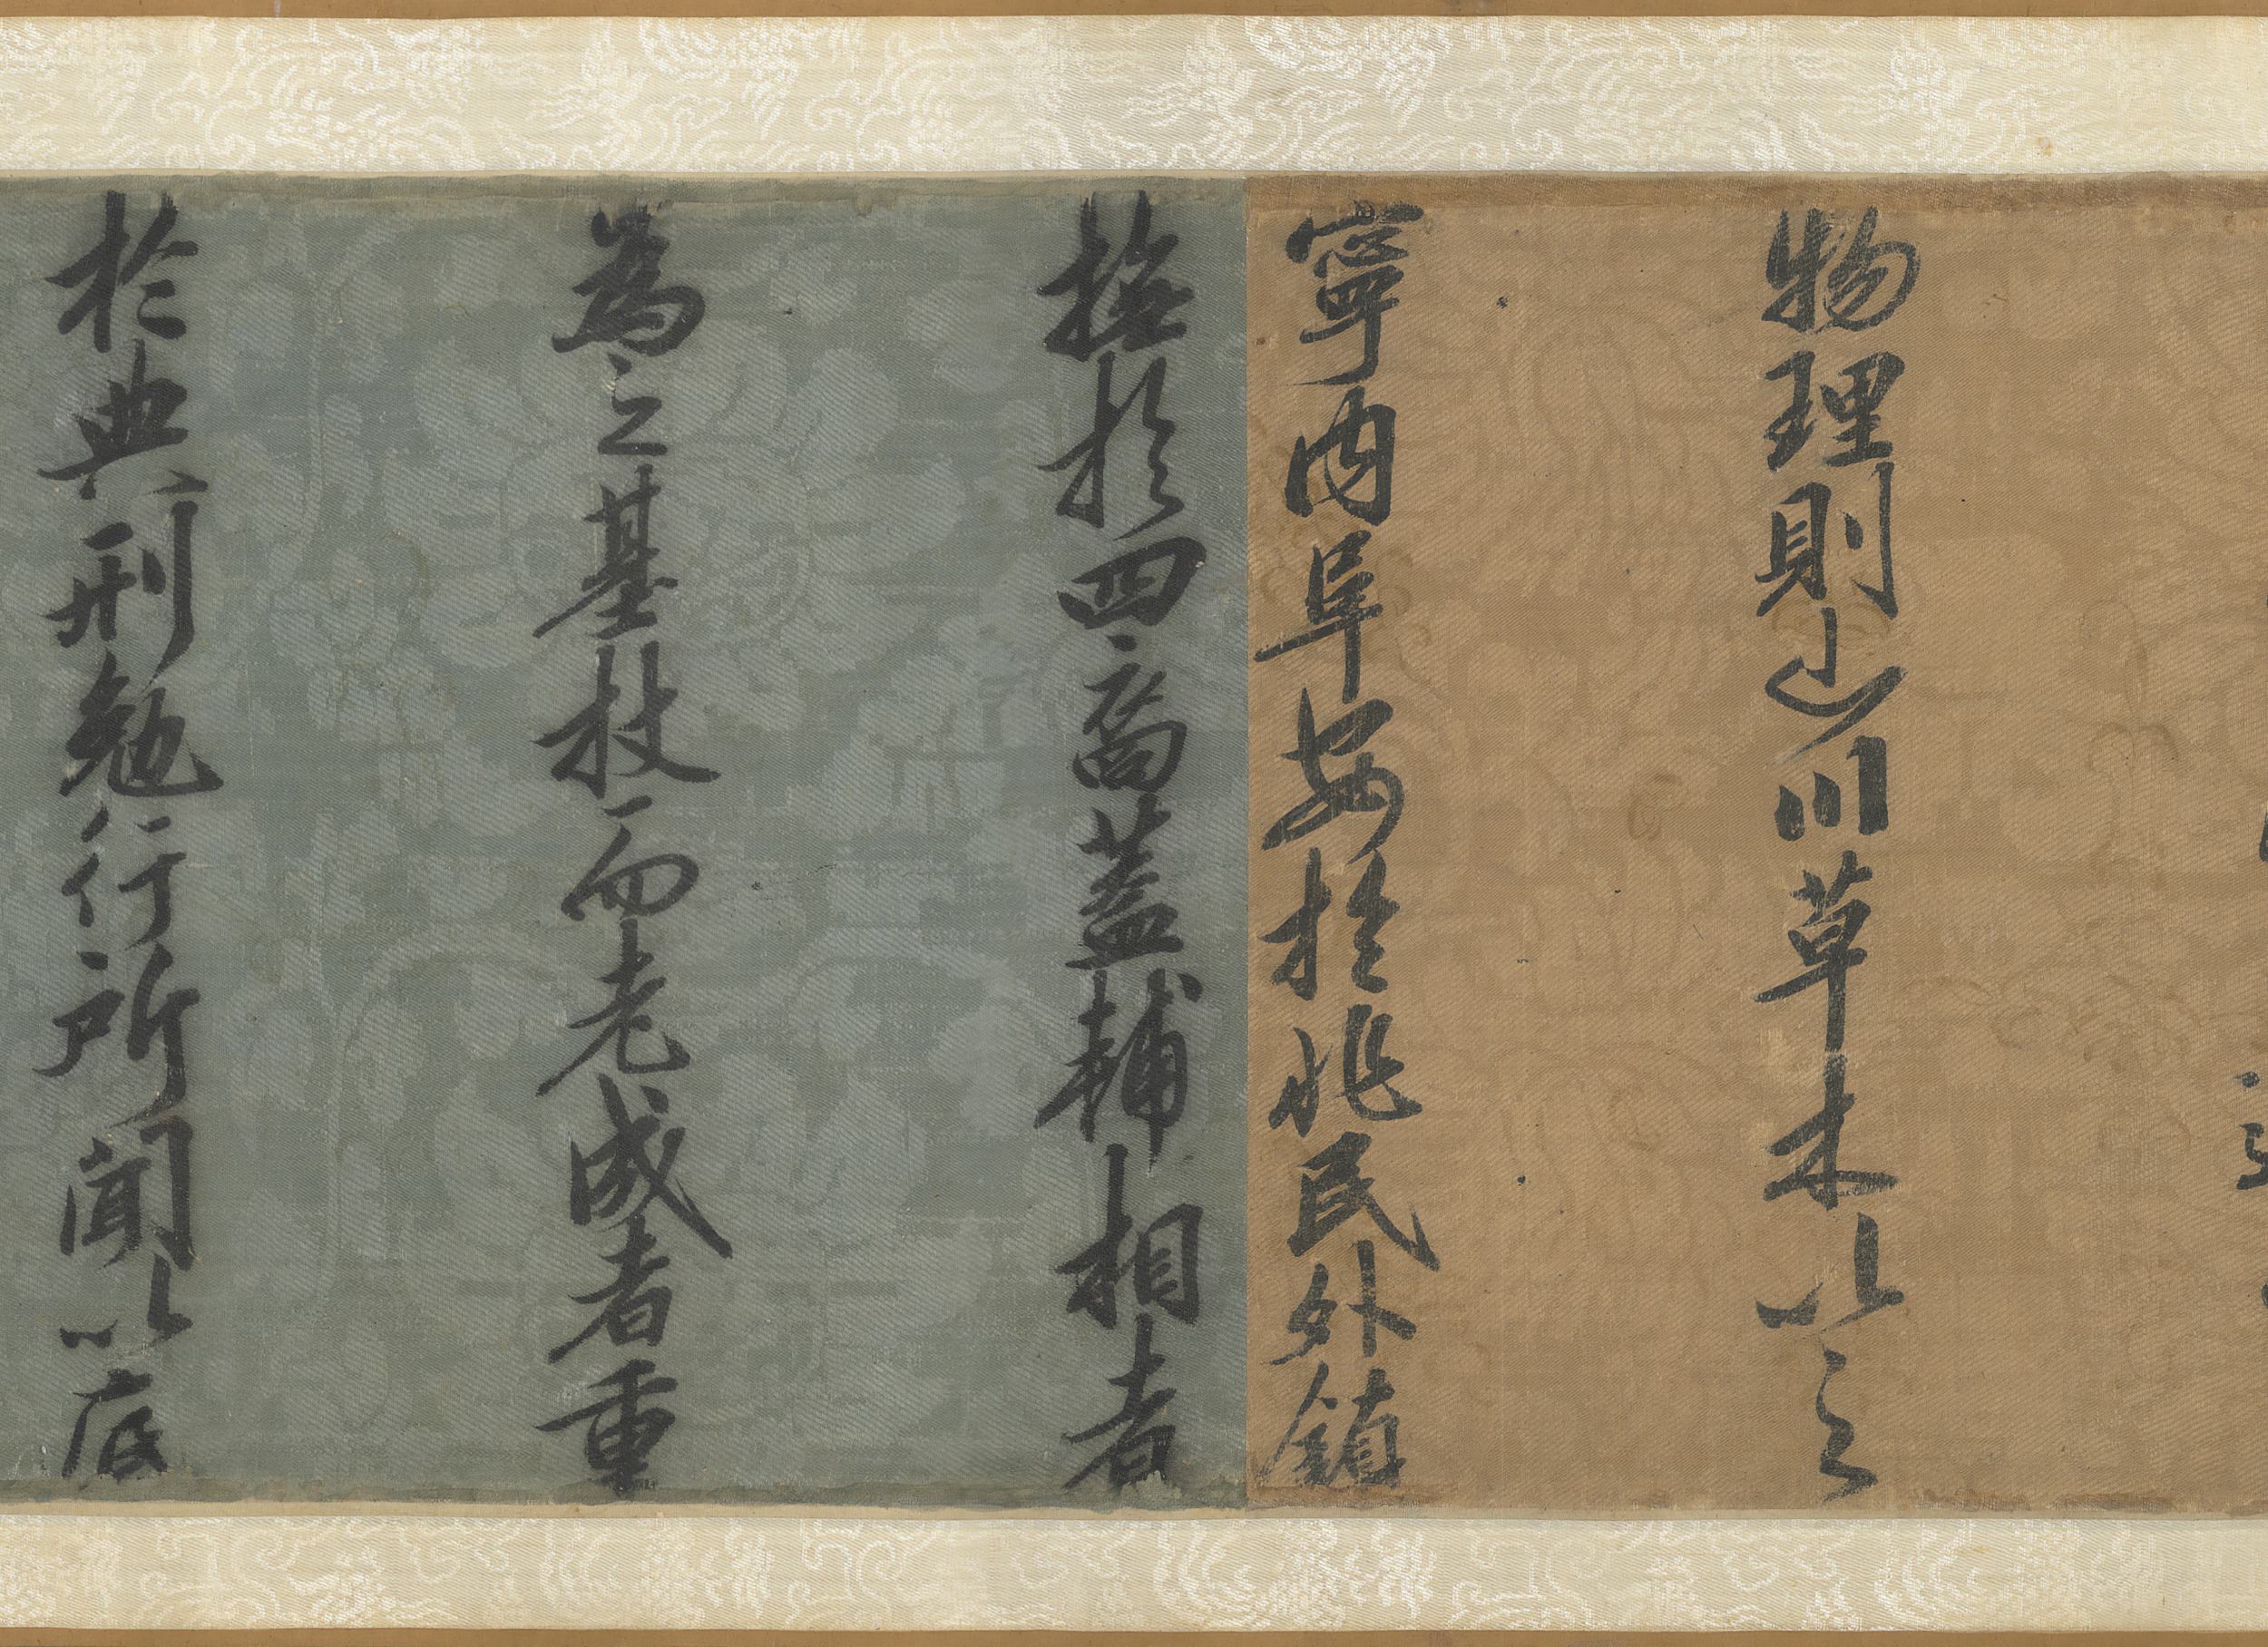 物理則山川草木以之
寧内阜安於兆民外鎮
撫於四裔蓋輔相者
為之基杖而老成者重
於典刑勉行所聞以底